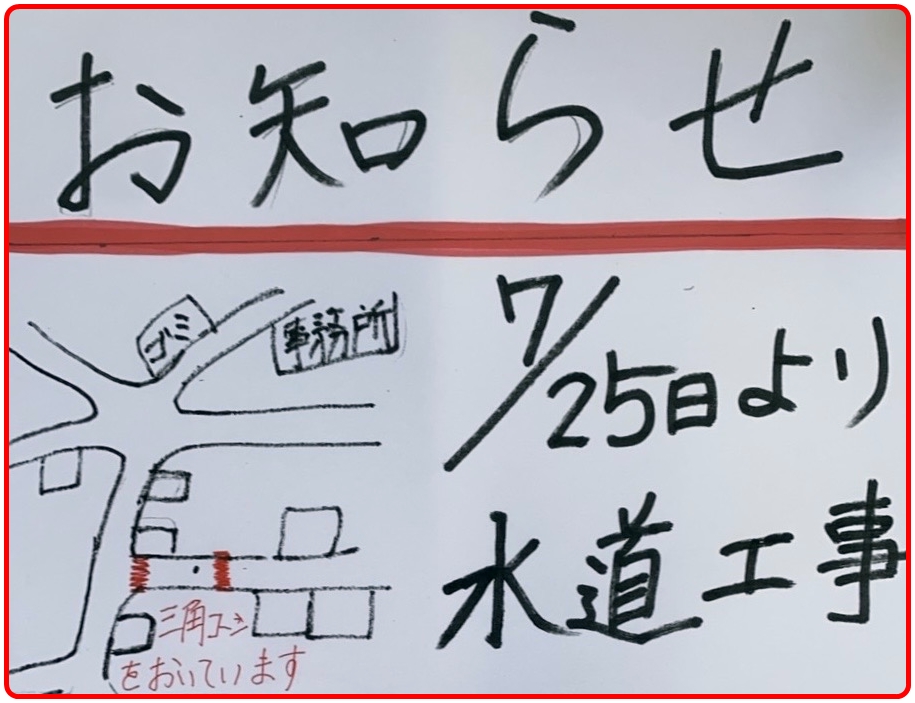 お知らせ
ゴミ
事務所
7/25日より
水道工事
三角コーン
をおいています